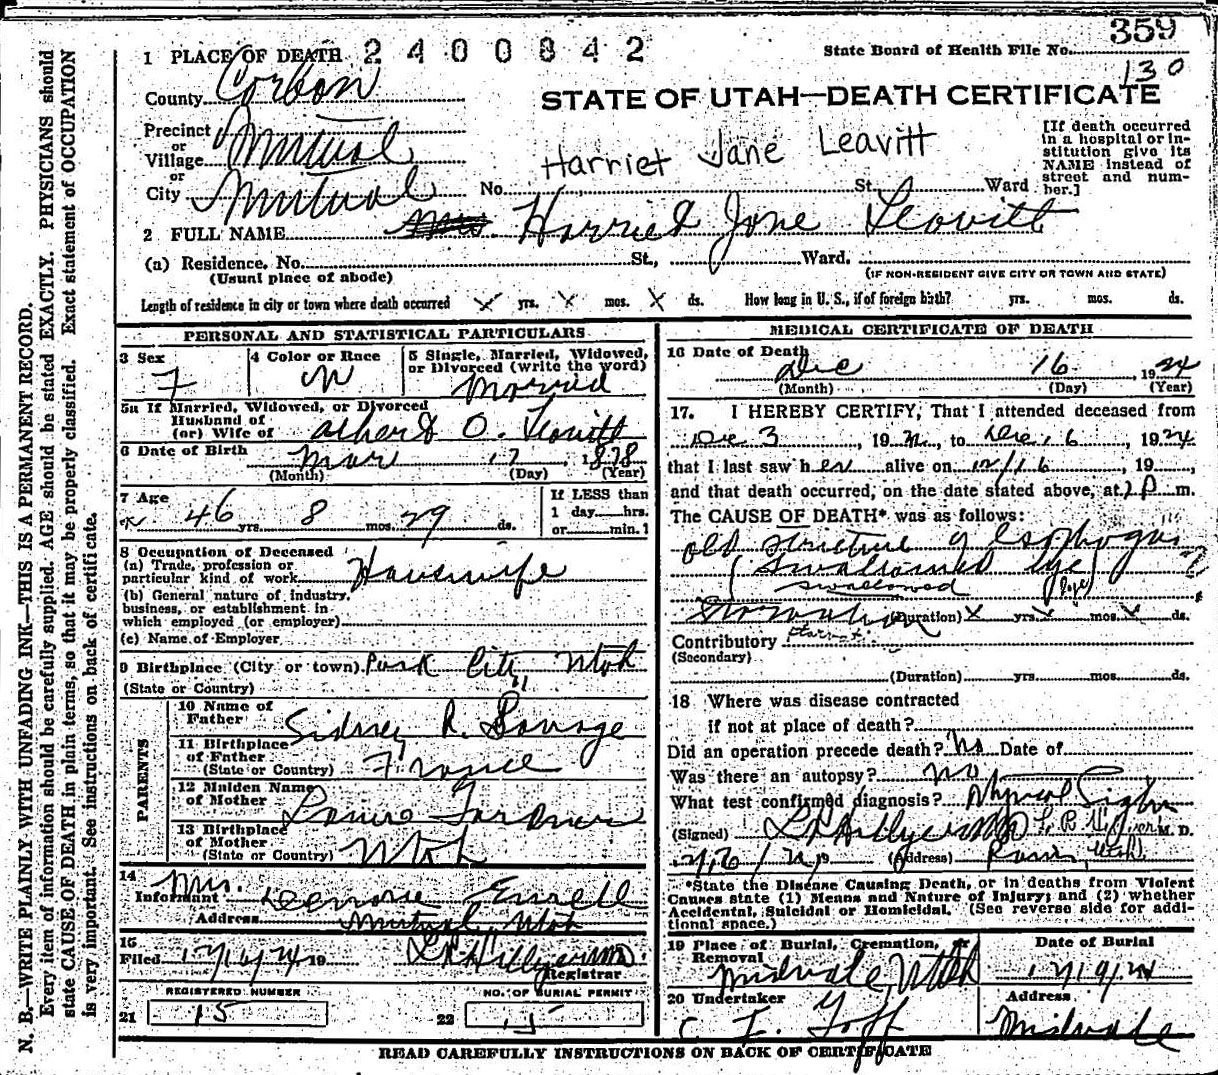 359
1 PLACE OF DEATH 2400842 State Board of Health File No.
130
County Carbon
STATE OF UTAH—DEATH CERTIFICATE
Precinct
or
Village Mutual
or
City Mutual No. St. Ward
Harriet Jane Leavitt
[If death occurred in a hospital or institution give its NAME instead of street and number.]
2 FULL NAME Mrs. Harriet Jane Leavitt
(a) Residence. No. St., Ward.
(Usual place of abode) (IF NON-RESIDENT GIVE CITY OR TOWN AND STATE)
Length of residence in city or town where death occurred X yrs. X mos. X ds. How long in U. S., if of foreign birth? yrs. mos. ds.
PERSONAL AND STATISTICAL PARTICULARS
3 Sex F
4 Color or Race W
5 Single, Married, Widowed, or Divorced (write the word) Married
5a If Married, Widowed, or Divorced
Husband of
(or) Wife of Albert O. Leavitt
6 Date of Birth Mar 17 1878
(Month) (Day) (Year)
7 Age 46 yrs. 8 mos. 29 ds.
If LESS than
1 day hrs.
or min.1
8 Occupation of Deceased
(a) Trade, profession or
particular kind of work Housewife
(b) General nature of industry,
business, or establishment in
which employed (or employer)
(c) Name of Employer
9 Birthplace (City or town) Park City Utah
(State or Country)
PARENTS
10 Name of
Father Sidney R. Savage
11 Birthplace
of Father
(State or Country) France
12 Maiden Name
of Mother Gardner
13 Birthplace
of Mother
(State or Country) Utah
14
Informant Mrs.
Address Mutual, Utah
15
Filed 12/16/24 19
Registrar
REGISTERED NUMBER
21 15
NO. OF BURIAL PERMIT
22 15
MEDICAL CERTIFICATE OF DEATH
16 Date of Death Dec 16 1924
(Month) (Day) (Year)
17. I HEREBY CERTIFY, That I attended deceased from
Dec 3, 1924, to Dec 16, 1924
that I last saw her alive on 12/16, 19
and that death occurred, on the date stated above, at P m.
The CAUSE OF DEATH* was as follows:
old stricture of Esophogus
(Swallowed lye)
swallowed lye
Starvation (Duration) X yrs. X mos. X ds.
Contributory
(Secondary)
(Duration) yrs. mos. ds.
18 Where was disease contracted
if not at place of death?
Did an operation precede death? No Date of
Was there an autopsy? no
What test confirmed diagnosis? Physical Signs
(Signed) M. D.
12/16/24 19 (Address) Utah
*State the Disease Causing Death, or in deaths from Violent
Causes state (1) Means and Nature of Injury; and (2) whether
Accidental, Suicidal or Homicidal. (See reverse side for additional space.)
19 Place of Burial, Cremation, or
Removal Midvale, Utah
Date of Burial
12/19/24
20 Undertaker Goff
Address
Midvale
READ CAREFULLY INSTRUCTIONS ON BACK OF CERTIFICATE
N. B.—WRITE PLAINLY WITH UNFADING INK—THIS IS A PERMANENT RECORD.
Every item of information should be carefully supplied. AGE should be stated EXACTLY. PHYSICIANS should
state CAUSE OF DEATH in plain terms, so that it may be properly classified. Exact statement of OCCUPATION
is very important. See instructions on back of certificate.